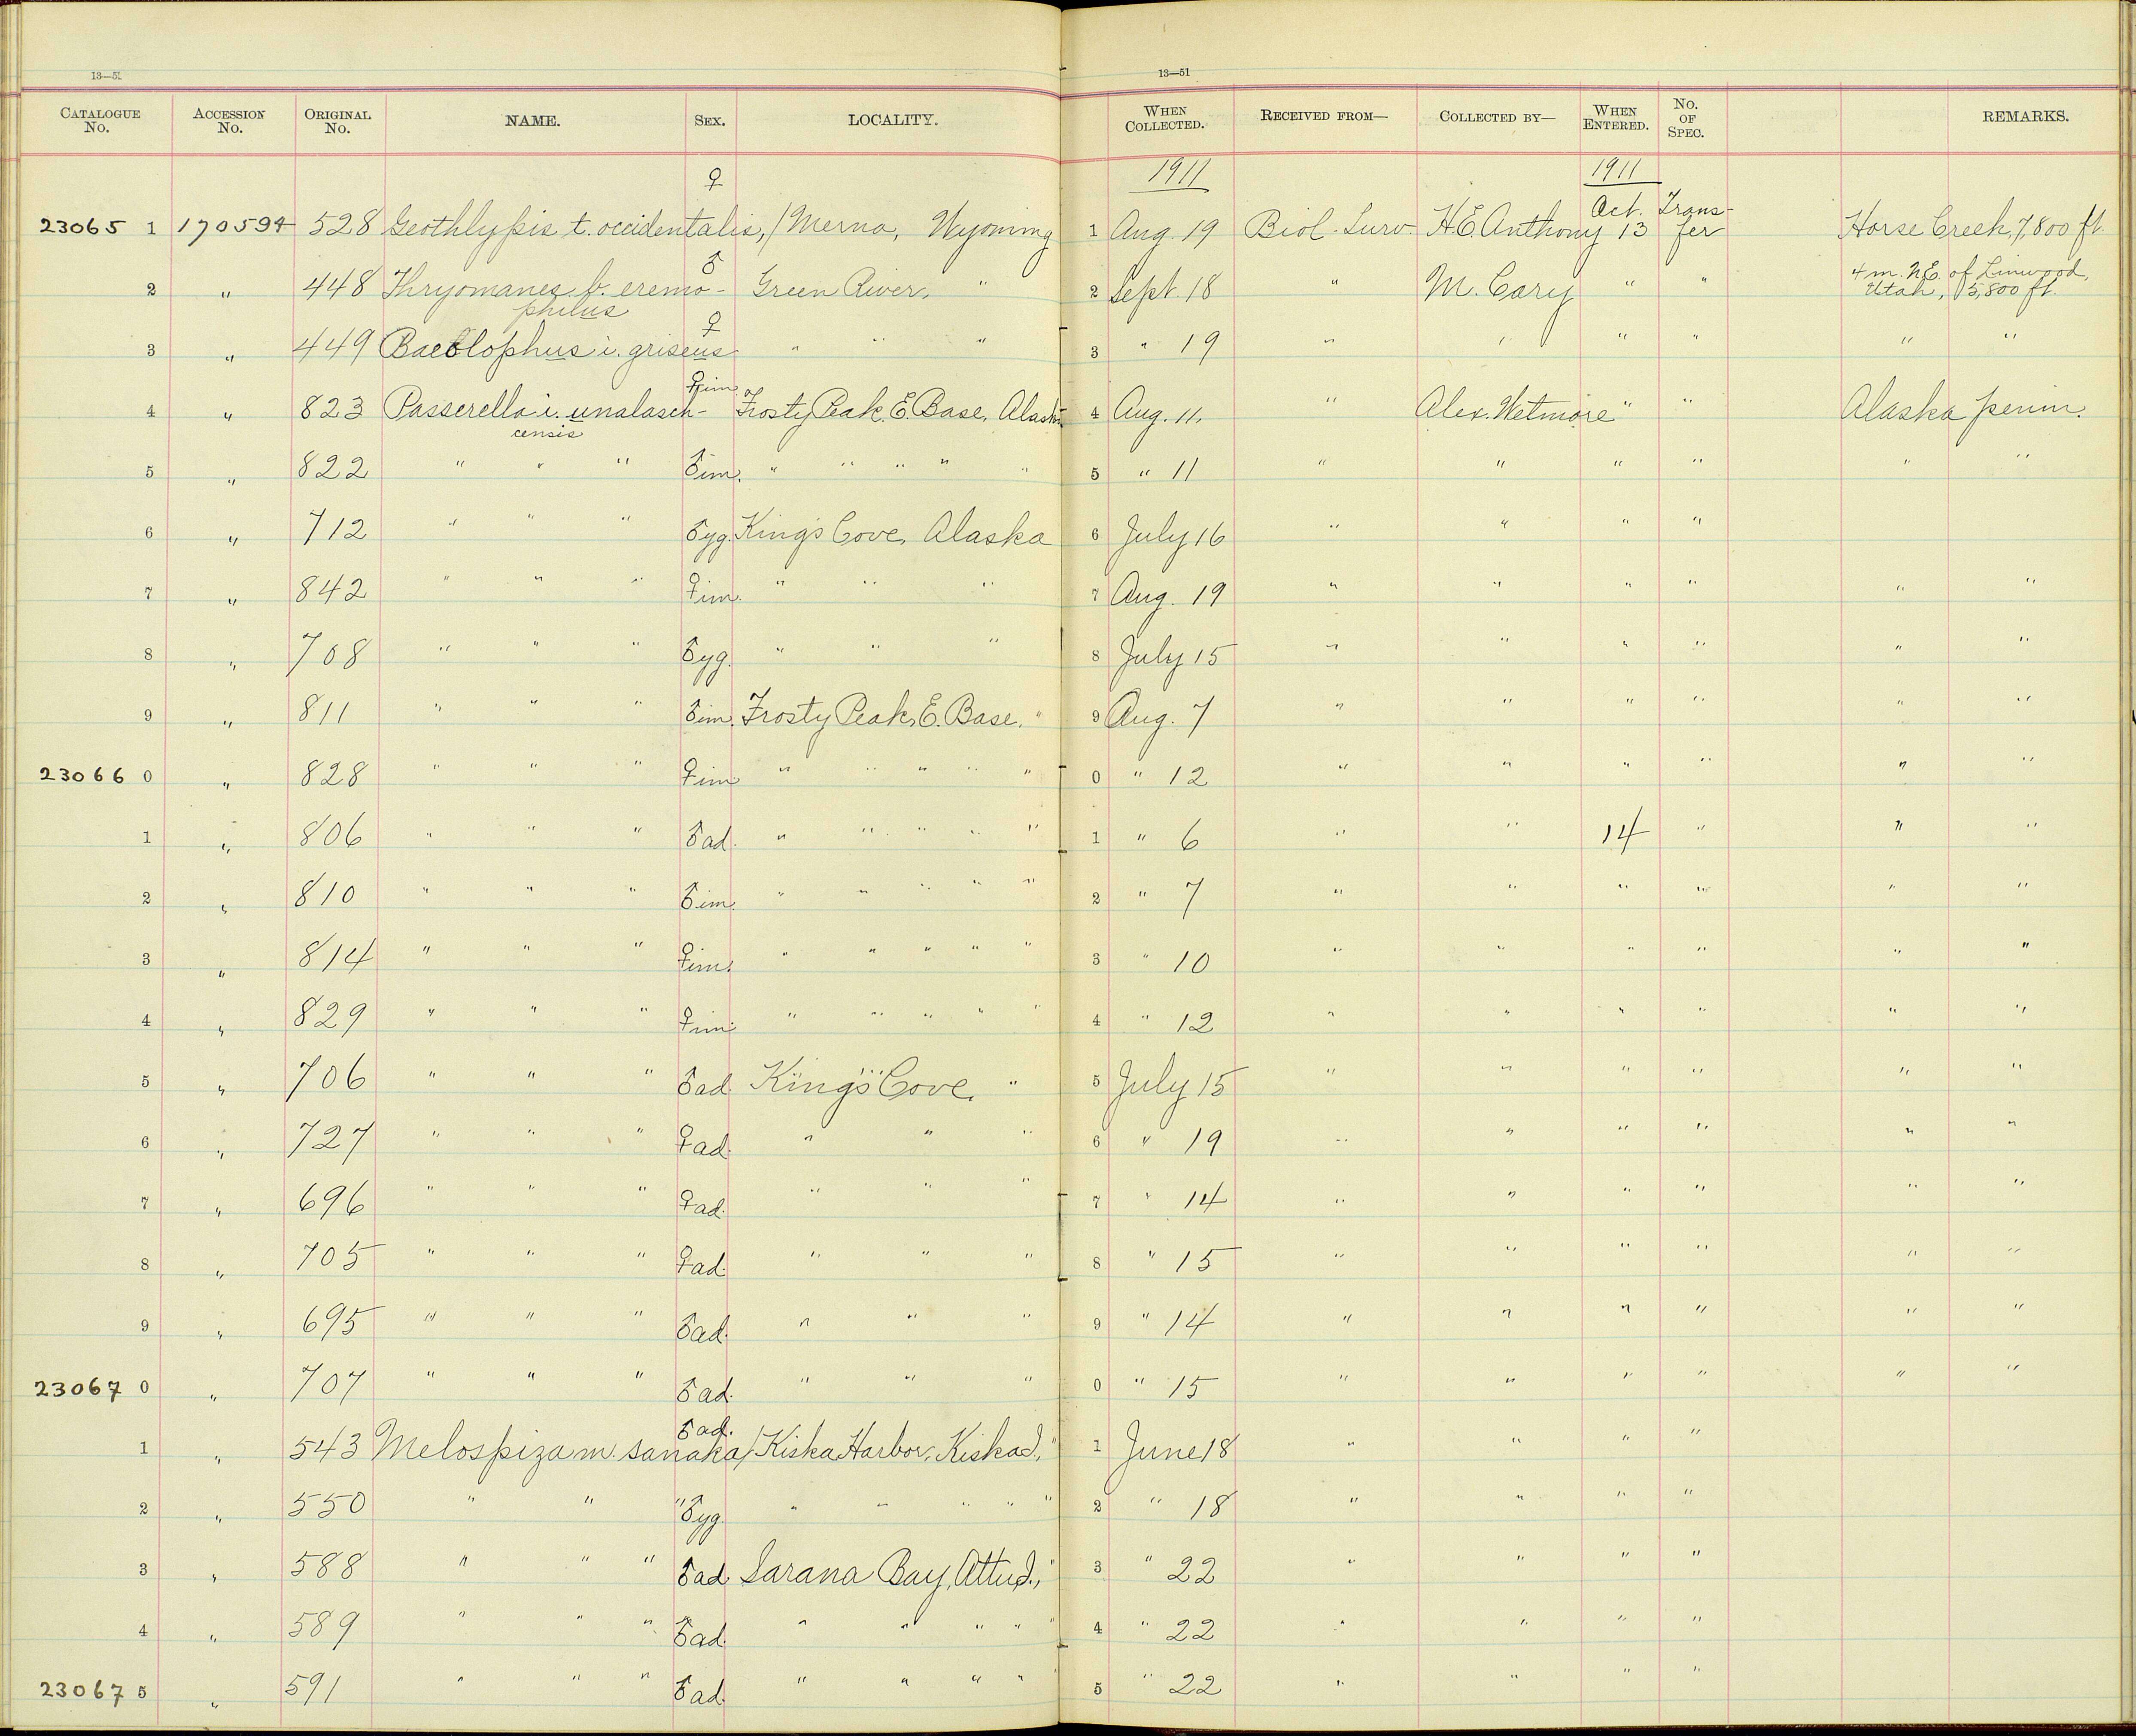 13—51
13—51
CATALOGUE No. ACCESSION No. ORIGINAL No. NAME. SEX. LOCALITY. WHEN COLLECTED. RECEIVED FROM— COLLECTED BY— WHEN ENTERED. No. OF SPEC. REMARKS.
♀ 1911 1911
23065 1 170594 528 Geothlypis t. occidentalis, / Merna, Wyoming 1 Aug. 19 Biol. Surv. H.E. Anthony Oct. 13 Transfer Horse Creek, 7,800 ft.
2 " 448 Thryomanes b. eremo- ♂ Green River, " 2 Sept. 18 " M. Cary " " 4 m. N.E. of Linwood,
philus Utah, 5,800 ft.
3 " 449 Baeolophus i. griseus ♀ " " " 3 " 19 " " " " " "
4 " 823 Passerella i. unalasch- ♀ im. Frosty Peak, E. Base, Alaska 4 Aug. 11. " Alex. Wetmore " " Alaska penin.
censis
5 " 822 " " " ♂ im. " " " " " 5 " 11 " " " " " "
6 " 712 " " " ♂ yg. King's Cove, Alaska 6 July 16 " " " "
7 " 842 " " " ♀ im. " " " 7 Aug. 19 " " " " " "
8 " 708 " " " ♂ yg. " " " 8 July 15 " " " " " "
9 " 811 " " " ♂ im. Frosty Peak, E. Base, " 9 Aug. 7 " " " " " "
23066 0 " 828 " " " ♀ im " " " " " 0 " 12 " " " " " "
1 " 806 " " " ♂ ad. " " " " " 1 " 6 " " 14 " " "
2 " 810 " " " ♂ im. " " " " " 2 " 7 " " " " " "
3 " 814 " " " ♀ im. " " " " " 3 " 10 " " " " " "
4 " 829 " " " ♀ im. " " " " " 4 " 12 " " " " " "
5 " 706 " " " ♂ ad. King's Cove, " 5 July 15 " " " " " "
6 " 727 " " " ♀ ad. " " " 6 " 19 " " " " " "
7 " 696 " " " ♀ ad. " " " 7 " 14 " " " " " "
8 " 705 " " " ♀ ad. " " " 8 " 15 " " " " " "
9 " 695 " " " ♂ ad. " " " 9 " 14 " " " " " "
23067 0 " 707 " " " ♂ ad. " " " 0 " 15 " " " " " "
1 " 543 Melospiza m. sanaka / ♂ ad. Kiska Harbor, Kiska I., " 1 June 18 " " " "
2 " 550 " " " ♂ yg. " " " " " 2 " 18 " " " "
3 " 588 " " " ♂ ad. Sarana Bay, Attu I., " 3 " 22 " " " "
4 " 589 " " " ♂ ad. " " " " " 4 " 22 " " " "
23067 5 " 591 " " " ♂ ad. " " " " " 5 " 22 " " " "